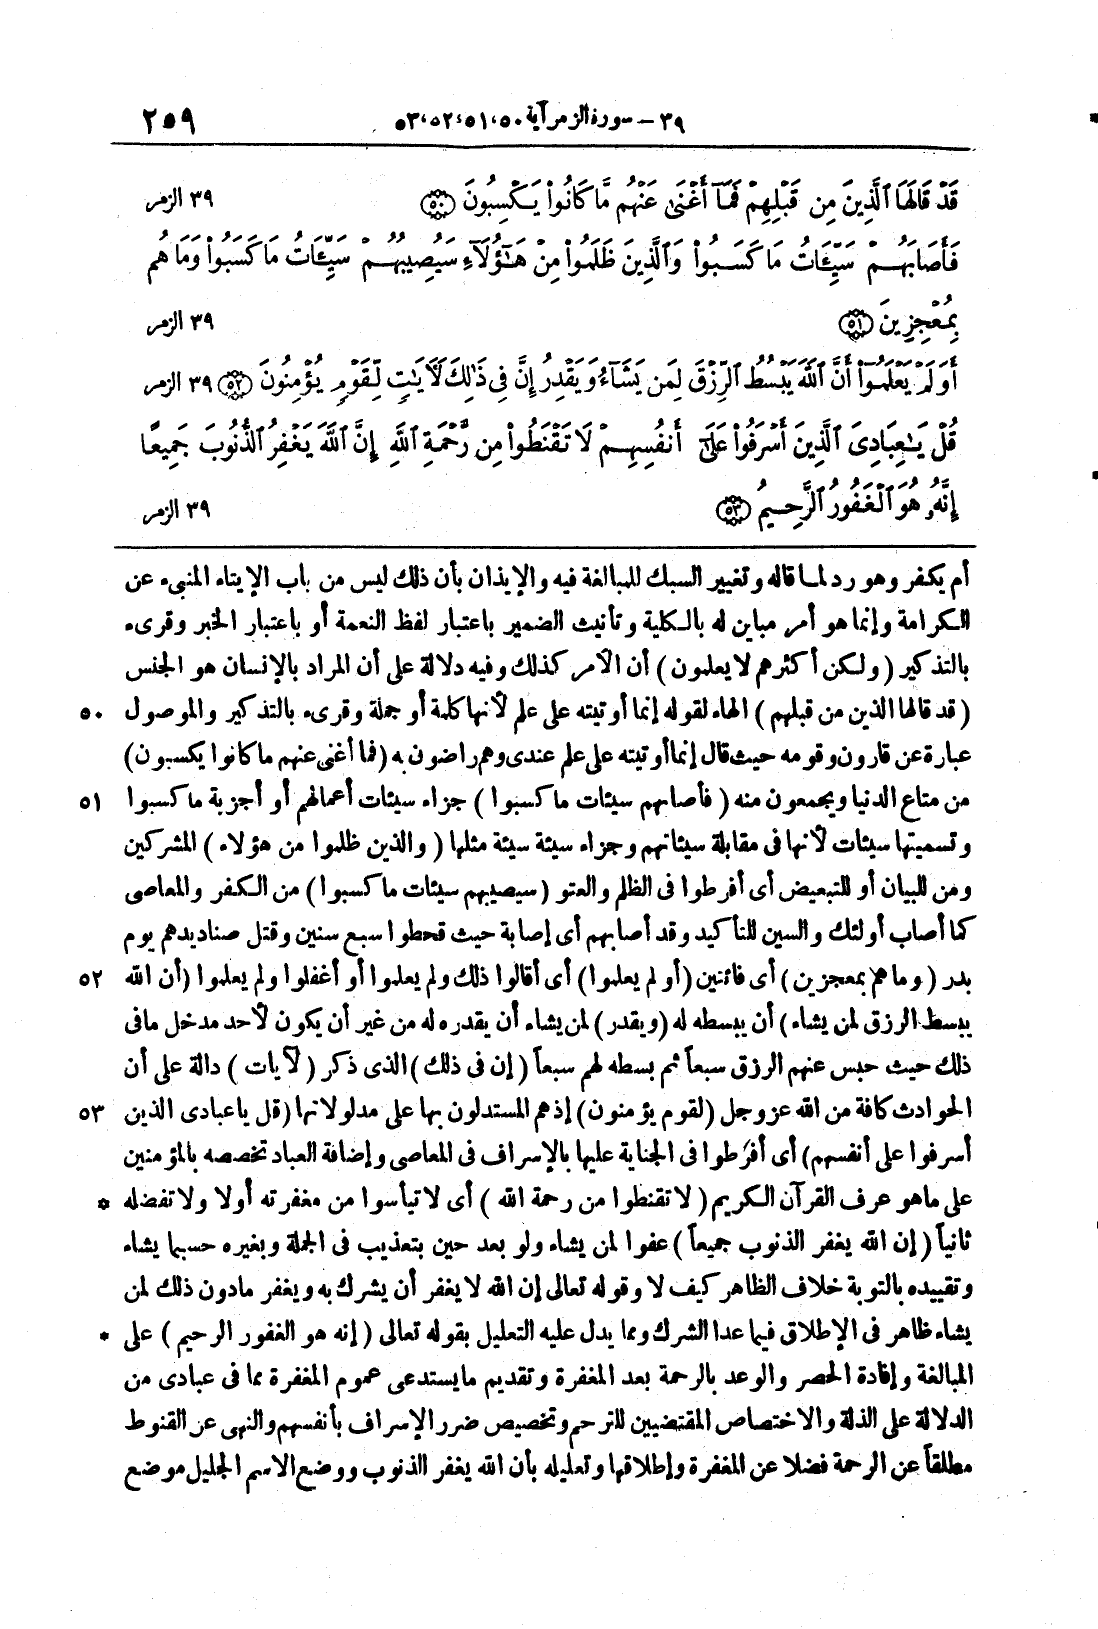 ٣٩ — سورة الزمر آية ٥٠، ٥١، ٥٢، ٥٣ ٢٥٩
قَدْ قَالَهَا ٱلَّذِينَ مِن قَبْلِهِمْ فَمَآ أَغْنَىٰ عَنْهُم مَّا كَانُوا۟ يَكْسِبُونَ ﴿٥٠﴾ ٣٩ الزمر
فَأَصَابَهُمْ سَيِّـَٔاتُ مَا كَسَبُوا۟ وَٱلَّذِينَ ظَلَمُوا۟ مِنْ هَـٰٓؤُلَآءِ سَيُصِيبُهُمْ سَيِّـَٔاتُ مَا كَسَبُوا۟ وَمَا هُم
بِمُعْجِزِينَ ﴿٥١﴾ ٣٩ الزمر
أَوَلَمْ يَعْلَمُوٓا۟ أَنَّ ٱللَّهَ يَبْسُطُ ٱلرِّزْقَ لِمَن يَشَآءُ وَيَقْدِرُ إِنَّ فِى ذَٰلِكَ لَـَٔايَـٰتٍ لِّقَوْمٍ يُؤْمِنُونَ ﴿٥٢﴾ ٣٩ الزمر
قُلْ يَـٰعِبَادِىَ ٱلَّذِينَ أَسْرَفُوا۟ عَلَىٰٓ أَنفُسِهِمْ لَا تَقْنَطُوا۟ مِن رَّحْمَةِ ٱللَّهِ إِنَّ ٱللَّهَ يَغْفِرُ ٱلذُّنُوبَ جَمِيعًا
إِنَّهُۥ هُوَ ٱلْغَفُورُ ٱلرَّحِيمُ ﴿٥٣﴾ ٣٩ الزمر
أم يكفر وهو رد لما قاله وتغيير السبك للمبالغة فيه والإيذان بأن ذلك ليس من باب الإيتاء المنبىء عن
الكرامة وإنما هو أمر مباين له بالكلية وتأنيث الضمير باعتبار لفظ النعمة أو باعتبار الخبر وقرىء
بالتذكير (ولكن أكثرهم لا يعلمون) أن الأمر كذلك وفيه دلالة على أن المراد بالإنسان هو الجنس
(قد قالها الذين من قبلهم) الهاء لقوله إنما أوتيته على علم لأنها كلمة أو جملة وقرىء بالتذكير والموصول ٥٠
عبارة عن قارون وقومه حيث قال إنما أوتيته على علم عندى وهم راضون به (فما أغنى عنهم ما كانوا يكسبون)
من متاع الدنيا ويجمعون منه (فأصابهم سيئات ما كسبوا) جزاء سيئات أعمالهم أو أجزية ما كسبوا ٥١
وتسميتها سيئات لأنها فى مقابلة سيئاتهم وجزاء سيئة سيئة مثلها (والذين ظلموا من هؤلاء) المشركين
ومن للبيان أو للتبعيض أى أفرطوا فى الظلم والعتو (سيصيبهم سيئات ما كسبوا) من الكفر والمعاصى
كما أصاب أولئك والسين للتأكيد وقد أصابهم أى إصابة حيث قحطوا سبع سنين وقتل صناديدهم يوم
بدر (وما هم بمعجزين) أى فائتين (أو لم يعلموا) أى أقالوا ذلك ولم يعلموا أو أغفلوا ولم يعلموا (أن الله ٥٢
يبسط الرزق لمن يشاء) أن يبسطه له (ويقدر) لمن يشاء أن يقدره له من غير أن يكون لأحد مدخل ما فى
ذلك حيث حبس عنهم الرزق سبعاً ثم بسطه لهم سبعاً (إن فى ذلك) الذى ذكر (لآيات) دالة على أن
الحوادث كافة من الله عز وجل (لقوم يؤمنون) إذ هم المستدلون بها على مدلولاتها (قل يا عبادى الذين ٥٣
أسرفوا على أنفسهم) أى أفرَطوا فى الجناية عليها بالإسراف فى المعاصى وإضافة العباد تخصصه بالمؤمنين
على ما هو عرف القرآن الكريم (لا تقنطوا من رحمة الله) أى لا تيأسوا من مغفرته أولا ولا تفضله *
ثانياً (إن الله يغفر الذنوب جميعاً) عفوا لمن يشاء ولو بعد حين بتعذيب فى الجملة وبغيره حسبما يشاء
وتقييده بالتوبة خلاف الظاهر كيف لا وقوله تعالى إن الله لا يغفر أن يشرك به ويغفر ما دون ذلك لمن
يشاء ظاهر فى الإطلاق فيما عدا الشرك ومما يدل عليه التعليل بقوله تعالى (إنه هو الغفور الرحيم) على *
المبالغة وإفادة الحصر والوعد بالرحمة بعد المغفرة وتقديم ما يستدعى عموم المغفرة مما فى عبادى من
الدلالة على الذلة والاختصاص المقتضيين للترحم وتخصيص ضرر الإسراف بأنفسهم والنهى عن القنوط
مطلقاً عن الرحمة فضلا عن المغفرة وإطلاقها وتعليله بأن الله يغفر الذنوب ووضع الاسم الجليل موضع